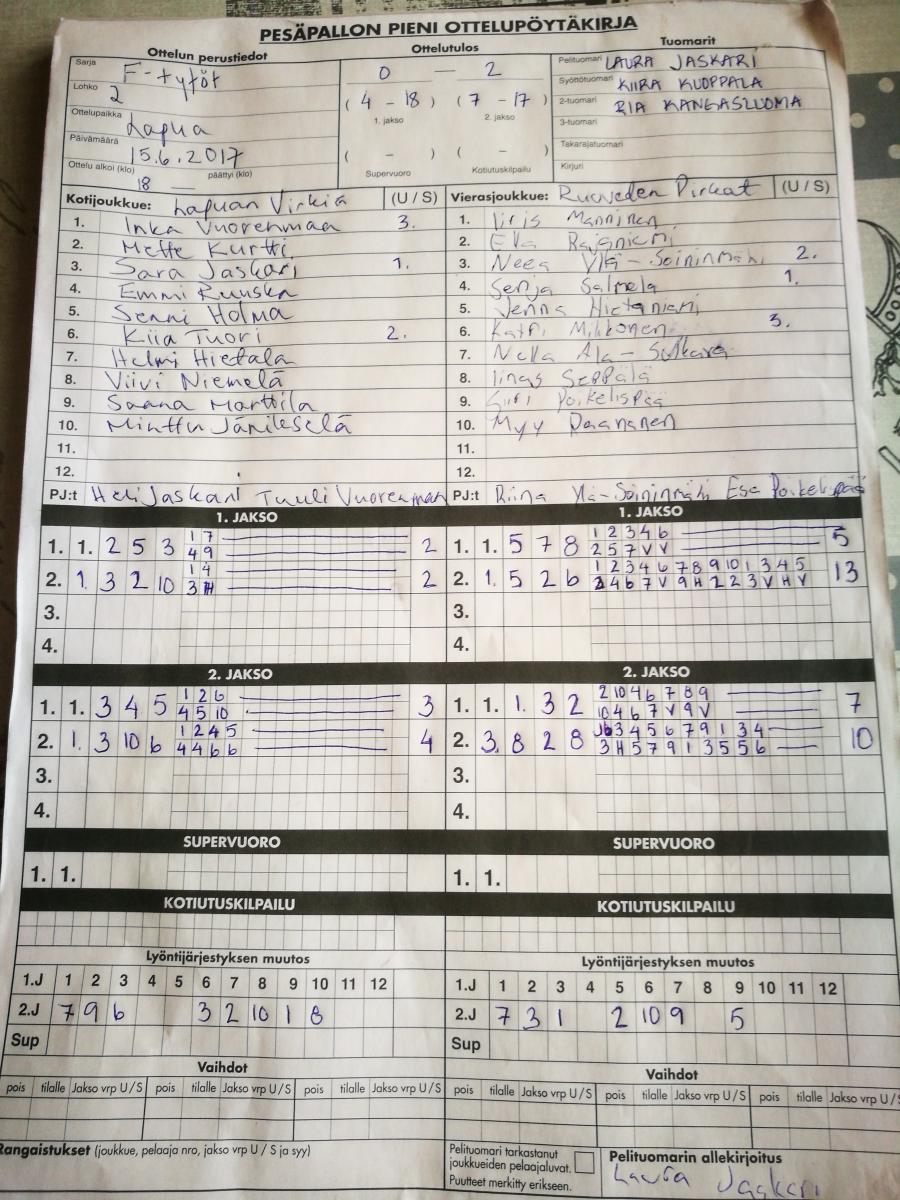 PESÄPALLON PIENI OTTELUPÖYTÄKIRJA
Ottelun perustiedot
Ottelutulos
Tuomarit
Sarja F-tytöt
Lohko 2
Ottelupaikka Lapua
Päivämäärä 15.6.2017
Ottelu alkoi (klo) 18 — päättyi (klo)
0 — 2
( 4 - 18 ) ( 7 - 17 )
1. jakso 2. jakso
( - ) ( - )
Supervuoro Kotiutuskilpailu
Pelituomari LAURA JASKARI
Syöttötuomari KIIRA KUOPPALA
2-tuomari RIA KANGASLUOMA
3-tuomari
Takarajatuomari
Kirjuri
Kotijoukkue: Lapuan Virkiä (U / S)
1. Inka Vuorenmaa 3.
2. Mette Kurtti
3. Sara Jaskari 1.
4. Emmi Ruuska
5. Senni Holma
6. Kiia Tuori 2.
7. Helmi Hietala
8. Viivi Niemelä
9. Saana Marttila
10. Minttu Jänikeselä
11.
12.
PJ:t Heli Jaskari Tuuli Vuorenmaa
Vierasjoukkue: Ruoveden Pirkat (U / S)
1. Iiris Manninen
2. Ella Rajaniemi
3. Neea Ylä-Soininmäki 2.
4. Senja Salmela 1.
5. Jenna Hietaniemi
6. Katri Mikkonen 3.
7. Nella Ala-
8. Seppälä
9. Poikelispää
10. Myy Paananen
11.
12.
PJ:t Riina Ylä-Soininmäki Esa Poikelispää
1. JAKSO
1. 1. 2 5 3 1 7 2
4 9
2. 1. 3 2 10 1 4 2
3 H
3.
4.
1. JAKSO
1. 1. 5 7 8 1 2 3 4 6 5
2 5 7 V V
2. 1. 5 2 6 1 2 3 4 6 7 8 9 10 1 3 4 5 13
2 4 6 7 V 9 H 2 2 3 V H V
3.
4.
2. JAKSO
1. 1. 3 4 5 1 2 6 3
4 5 10
2. 1. 3 10 6 1 2 4 5 4
4 4 6 6
3.
4.
2. JAKSO
1. 1. 1. 3 2 2 10 4 6 7 8 9 7
10 4 6 7 V 9 V
2. 3. 8 2 8 3 4 5 6 7 9 1 3 4 10
3 H 5 7 9 1 3 5 5 6
3.
4.
SUPERVUORO
1. 1.
SUPERVUORO
1. 1.
KOTIUTUSKILPAILU
KOTIUTUSKILPAILU
Lyöntijärjestyksen muutos
1.J 1 2 3 4 5 6 7 8 9 10 11 12
2.J 7 9 6 3 2 10 1 8
Sup
Lyöntijärjestyksen muutos
1.J 1 2 3 4 5 6 7 8 9 10 11 12
2.J 7 3 1 2 10 9 5
Sup
Vaihdot
pois tilalle Jakso vrp U / S pois tilalle Jakso vrp U / S pois tilalle Jakso vrp U / S
Vaihdot
pois tilalle Jakso vrp U / S pois tilalle Jakso vrp U / S pois tilalle Jakso vrp U / S
Rangaistukset (joukkue, pelaaja nro, jakso vrp U / S ja syy)
Pelituomari tarkastanut
joukkueiden pelaajaluvat.
Puutteet merkitty erikseen.
Pelituomarin allekirjoitus
Laura Jaskari